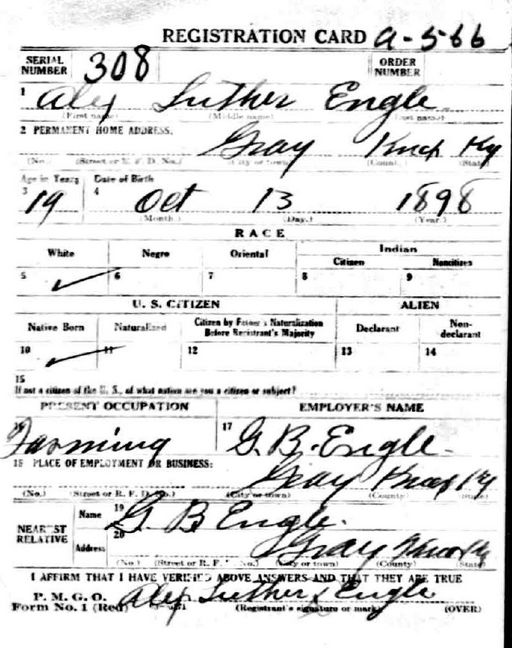 REGISTRATION CARD A-566
SERIAL NUMBER 308 ORDER NUMBER
1 Alex Luther Engle
(First name) (Middle name) (Last name)
2 PERMANENT HOME ADDRESS.
Gray Knox Ky
(No.) (Street or R. F. D. No.) (City or town) (County) (State)
Age in Years Date of Birth
3 19 4 Oct 13 1898
(Month.) (Day.) (Year.)
RACE
White Negro Oriental Indian
Citizen Noncitizen
5 ✓ 6 7 8 9
U. S. CITIZEN ALIEN
Native Born Naturalized Citizen by Father's Naturalization Before Registrant's Majority Declarant Non-declarant
10 ✓ 11 12 13 14
15
If not a citizen of the U. S., of what nation are you a citizen or subject?
PRESENT OCCUPATION EMPLOYER'S NAME
16 Farming 17 G. B. Engle
18 PLACE OF EMPLOYMENT OR BUSINESS:
Gray Knox Ky
(No.) (Street or R. F. D. No.) (City or town) (County) (State)
NEAREST RELATIVE
Name 19 G B Engle
Address 20 Gray Knox Ky
(No.) (Street or R. F. D. No.) (City or town) (County) (State)
I AFFIRM THAT I HAVE VERIFIED ABOVE ANSWERS AND THAT THEY ARE TRUE
P. M. G. O.
Form No. 1 (Red) Alex Luther Engle
(Registrant's signature or mark) (OVER)